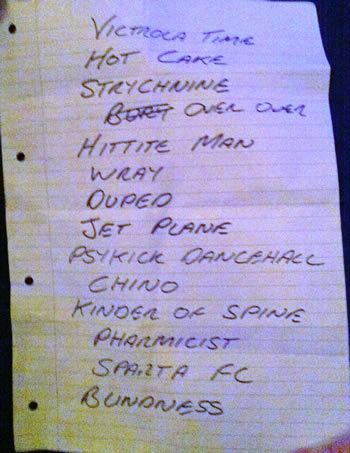 VICTROLA TIME
HOT CAKE
STRYCHNINE
BURY OVER OVER
HITTITE MAN
WRAY
DUPED
JET PLANE
PSYKICK DANCEHALL
CHINO
KINDER OF SPINE
PHARMICIST
SPARTA FC
BLINDNESS